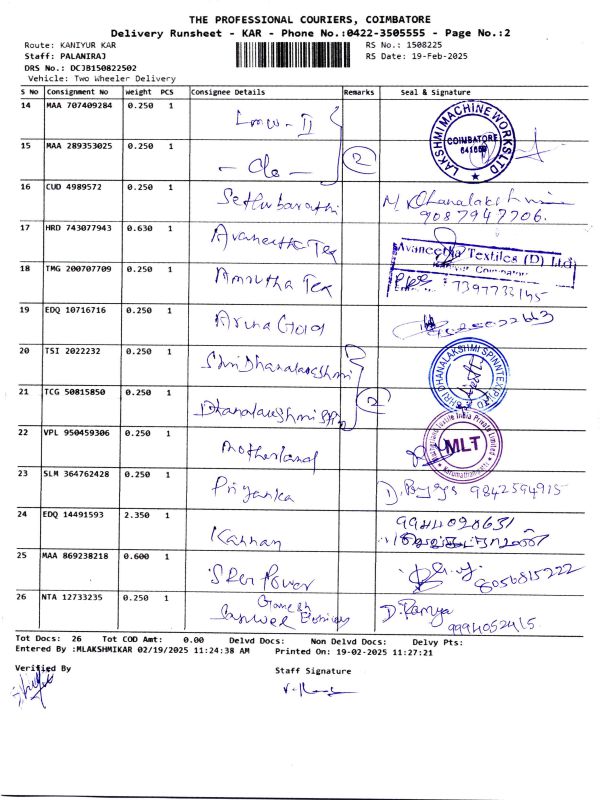 THE PROFESSIONAL COURIERS, COIMBATORE
Delivery Runsheet - KAR - Phone No.:0422-3505555 - Page No.:2
Route: KANIYUR KAR RS No.: 1508225
Staff: PALANIRAJ RS Date: 19-Feb-2025
DRS No.: DCJB150822502
Vehicle: Two Wheeler Delivery
S No Consignment No Weight PCS Consignee Details Remarks Seal & Signature
14 MAA 707409284 0.250 1 Lmw - II LAKSHMI MACHINE WORKS LTD COIMBATORE
15 MAA 289353025 0.250 1 - do - 2
16 CUD 4989572 0.250 1 Sethubarathi M. Dhanalakshmi
9087947706.
17 HRD 743077943 0.630 1 Avaneetha Tex Avaneetha Textiles (P) Ltd
18 TMG 200707709 0.250 1 Amrutha Tex 7397733145
19 EDQ 10716716 0.250 1 Aruna Gold
20 TSI 2022232 0.250 1 Shri Dhanalakshmi SHRI DHANALAKSHMI SPINNTEX (P) LTD
21 TCG 50815850 0.250 1 Dhanalakshmi Spin 2
22 VPL 950459306 0.250 1 motherland Motherland Textile India Private Limited MLT
23 SLM 364762428 0.250 1 Priyanka 9842594915
24 EDQ 14491593 2.350 1 Kannan 9944020631
25 MAA 869238218 0.600 1 SREE Power 8056815222
26 NTA 12733235 0.250 1 Ganesh D. Ramya
9994052415
Tot Docs: 26 Tot COD Amt: 0.00 Delvd Docs: Non Delvd Docs: Delvy Pts:
Entered By :MLAKSHMIKAR 02/19/2025 11:24:38 AM Printed On: 19-02-2025 11:27:21
Verified By Staff Signature